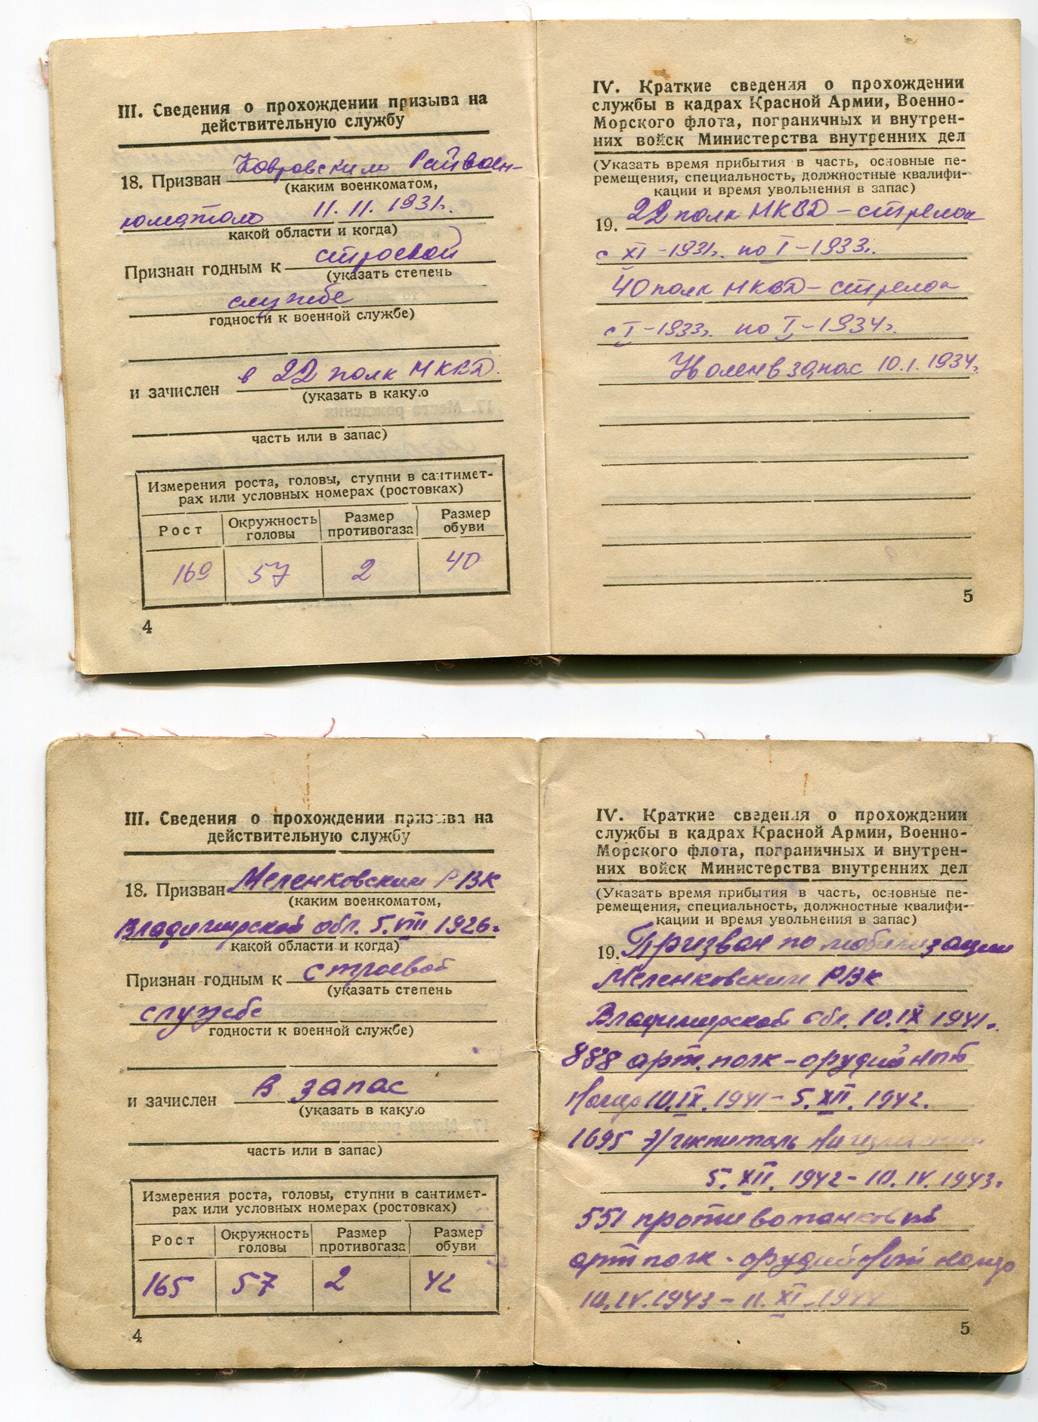 III. Сведения о прохождении призыва на
действительную службу
18. Призван Ковровским Райвоен-
(каким военкоматом,
коматом 11.11.1931г.
какой области и когда)
Признан годным к строевой
(указать степень
службе
годности к военной службе)
и зачислен в 22 полк НКВД.
(указать в какую
часть или в запас)
Измерения роста, головы, ступни в сантимет-
рах или условных номерах (ростовках)
Рост Окружность головы Размер противогаза Размер обуви
169 57 2 40
4
IV. Краткие сведения о прохождении
службы в кадрах Красной Армии, Военно-
Морского флота, пограничных и внутрен-
них войск Министерства внутренних дел
(Указать время прибытия в часть, основные пе-
ремещения, специальность, должностные квалифи-
кации и время увольнения в запас)
19. 22 полк НКВД – стрелок
с XI-1931г. по I-1933г.
40 полк НКВД – стрелок
с I-1933г. по I-1934г.
Уволен в запас 10.1.1934г.
5
III. Сведения о прохождении призыва на
действительную службу
18. Призван Меленковским РВК
(каким военкоматом,
Владимирской обл. 5.VIII 1926г.
какой области и когда)
Признан годным к строевой
(указать степень
службе
годности к военной службе)
и зачислен в запас
(указать в какую
часть или в запас)
Измерения роста, головы, ступни в сантимет-
рах или условных номерах (ростовках)
Рост Окружность головы Размер противогаза Размер обуви
165 57 2 42
4
IV. Краткие сведения о прохождении
службы в кадрах Красной Армии, Военно-
Морского флота, пограничных и внутрен-
них войск Министерства внутренних дел
(Указать время прибытия в часть, основные пе-
ремещения, специальность, должностные квалифи-
кации и время увольнения в запас)
19. Призван по мобилизации
Меленковским РВК
Владимирской обл. 10.IX 1941г.
888 арт. полк – орудийный
номер 10.IX.1941 – 5.XII.1942.
1695 э/госпиталь
5.XII.1942 – 10.IV.1943г.
551 противотанковый
арт полк – орудийный номер
10.IV.1943 – 11.XI.1944
5